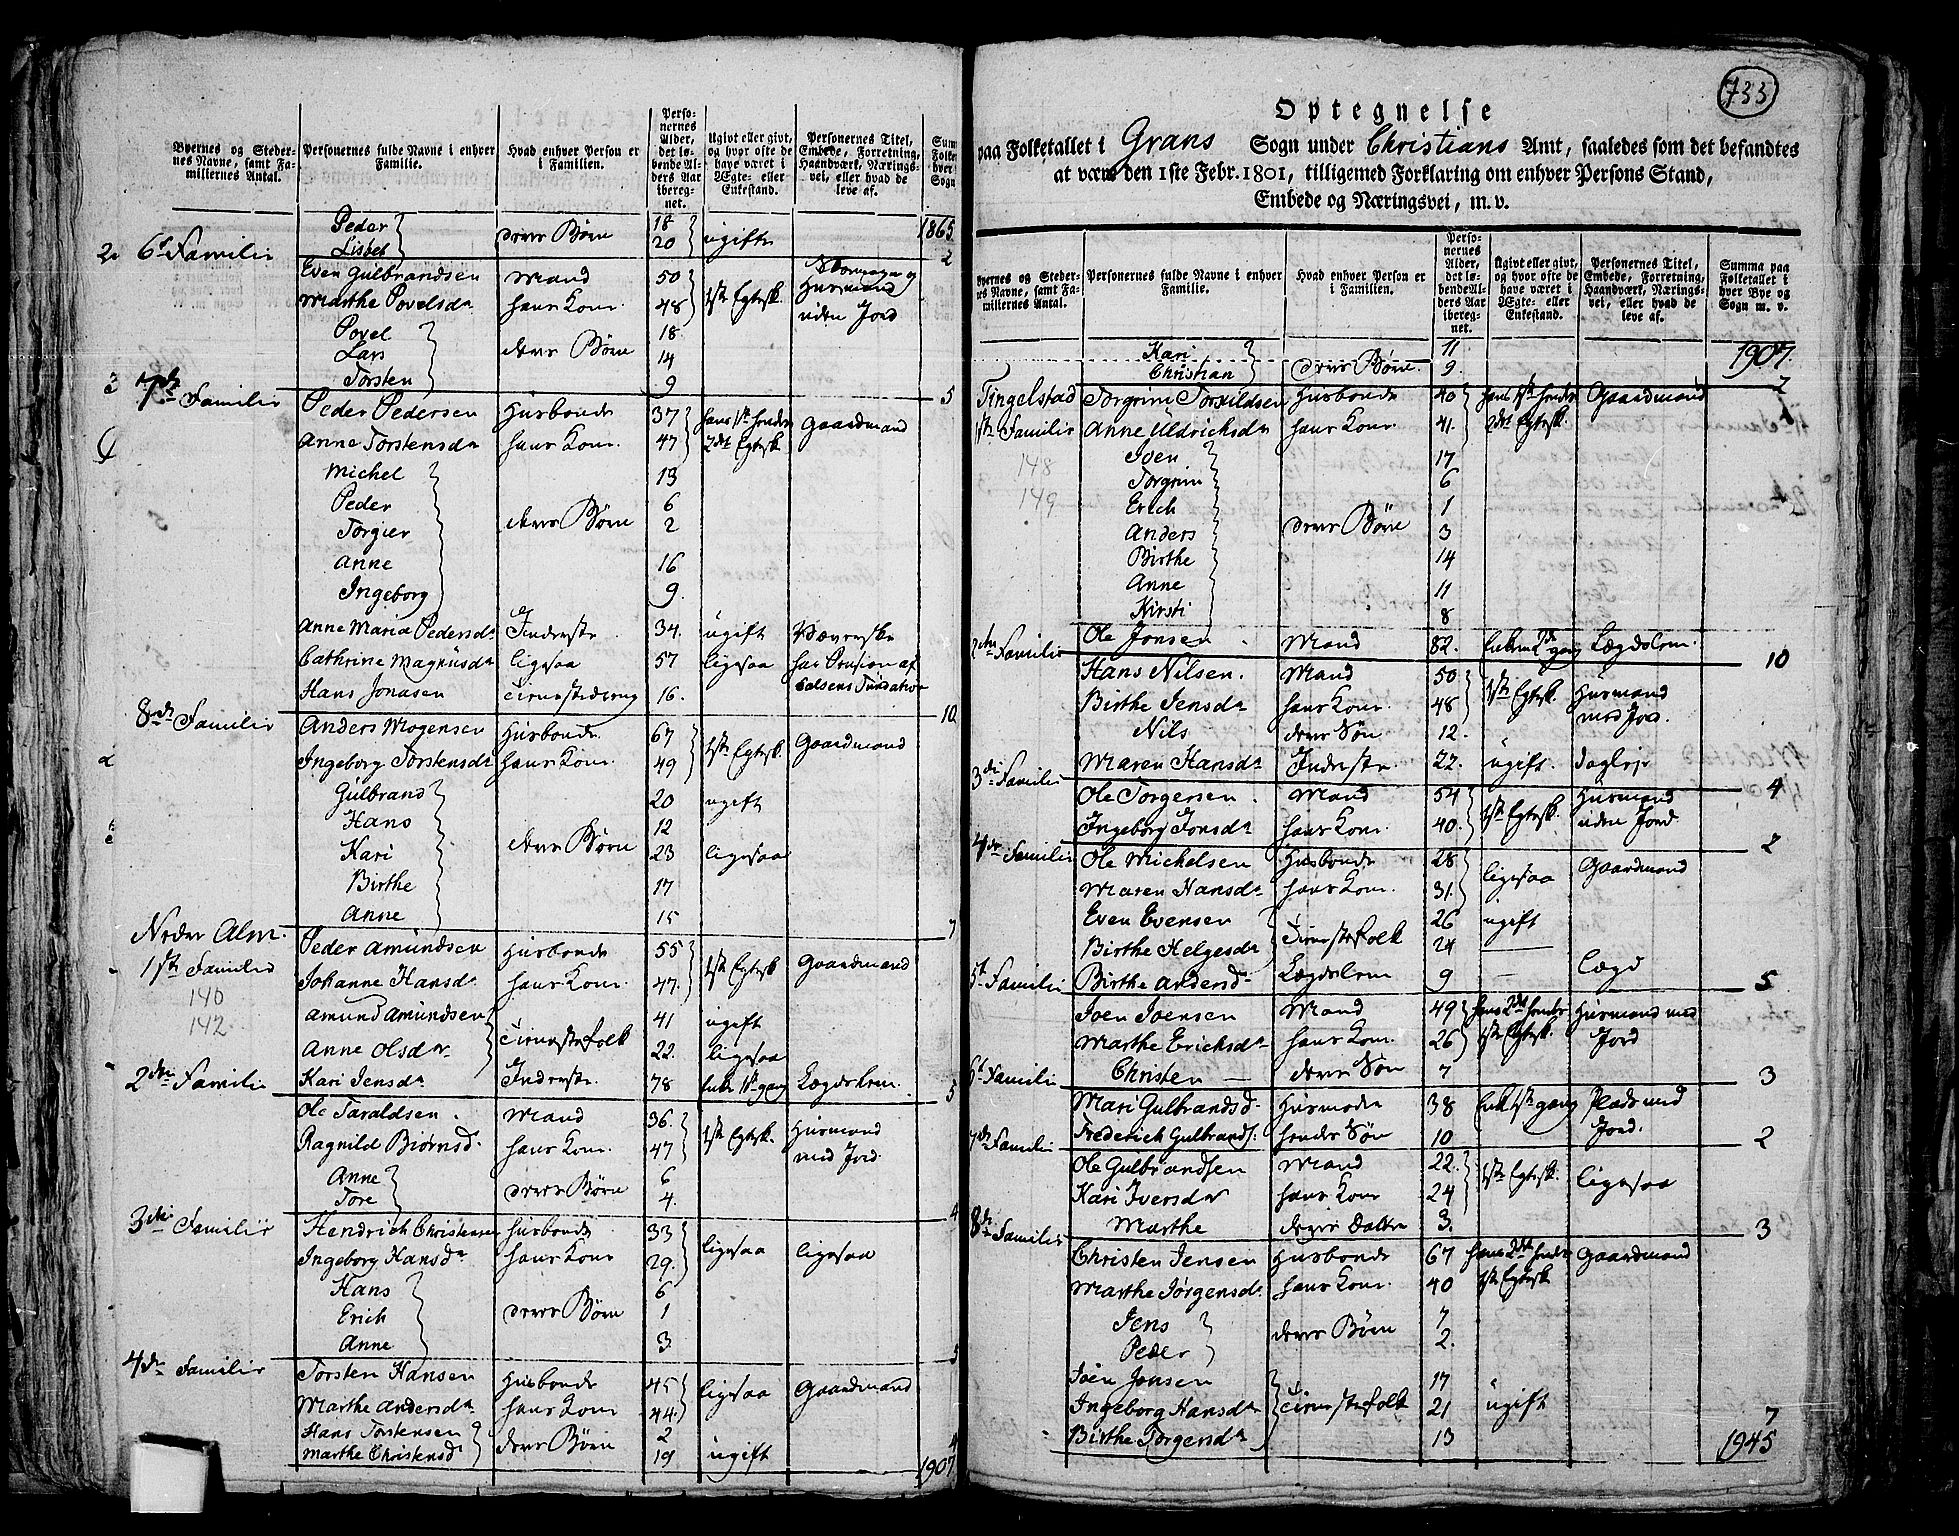 Byernes og Steder-
nes Navne, samt Fa-
miliernes Antal.
Personernes fulde Navne i enhver
Familie.
Hvad enhver Person er
i Familien.
Perso-
nernes
Alder,
det lø-
bende Al-
ders Aar
ibereg-
net.
Ugivt eller givt,
og hvor ofte de
have været i
Ægte- eller
Enkestand.
Personernes Titel,
Embede, Forretning,
Haandværk, Nærings-
vei, eller hvad de
leve af.
Peder 18
Lisbet deres Børn 20 ugifte 1865
6te Familie 2
Even Gulbrandsen Mand 50
Marthe Povelsdr hans Kone 48 1ste Egtesk. Husmand uden Jord
Povel 18
Lars deres Børn 14
Torsten 9
7de Familie 5
Peder Pedersen Husbonde 37 Gaardmand
Anne Torstensdr hans Kone 47 2det Egtesk.
Michel 13
Peder 6
Torgier deres Børn 2
Anne 16
Ingeborg 9.
Anne Maria Pedersdr Inderste 34. ugift Væverske
Cathrine Magnusdr ligesaa 57 ligesaa har Pension af
Hans Jonasen tienestedreng 16.
8de Familie 10
Anders Mogensen Husbonde 67
Ingeborg Torstensdr hans Kone 49 1ste Egtesk. Gaardmand
Gulbrand 20 ugift
Hans 12
Kari deres Børn 23 ligesaa
Birthe 17
Anne 15
Neder Alm. 7
1ste Familie Peder Amundsen Husbonde 55
Johanne Hansdr hans Kone 47. 1ste Egtesk Gaardmand
140
142
Amund Amundsen tienestefolk 41 ugift
Anne Olsdr 22. ligesaa
Kari Jensdr Inderste. 78 Enke 1ste gang Lægdslem.
2den Familie 5
Ole Taraldsen Mand 36.
Ragnild Biørnsd. hans Kone. 47 1ste Egtesk. Husmand med Jord
Anne deres Børn 6
Tore 4.
3die Familie 4
Hendrich Christensen Husbonde 33
Ingeborg Hansdr hans Kone 29. ligesaa ligesaa
Hans 6
Erich deres Børn 1
Anne 3
4de Familie 5
Torsten Hansen Husbonde 45
Marthe Andersdr hans Kone 44. ligesaa Gaardmand
Hans Torstensen deres Børn 2
Marthe Christensd 19 ugift 4
1907
733
Optegnelse
paa Folketallet i Grans Sogn under Christians Amt, saaledes som det befandtes
at være den 1ste Febr. 1801, tilligemed Forklaring om enhver Persons Stand,
Embede og Næringsvei, m. v.
Byernes og Steder-
nes Navne, samt Fa-
miliernes Antal.
Personernes fulde Navne i enhver
Familie.
Hvad enhver Person er
i Familien.
Perso-
nernes
Alder,
det lø-
bende Al-
ders Aar
ibereg-
net.
Ugivt eller givt,
og hvor ofte de
have været i
Ægte- eller
Enkestand.
Personernes Titel,
Embede, Forretning,
Haandværk, Nærings-
vei, eller hvad de
leve af.
Summa paa
Folketallet i
hver Bye og
Sogn m. v.
Kari 11 1907.
Christian deres Børn. 9.
Tingelstad 2
1ste Familie Torgrim Torkildsen Husbonde 40 Gaardmand
Anne Uldrichsdr hans Kone 41. 2det Egtesk.
148
149
Iven 17
Torgrim 6
Erich 1
Anders deres Børn 3
Birthe 14
Anne 11
Kirsti 8
Ole Jonsen Mand 82. Lægdslem.
2den Familie 10
Hans Nilsen. Mand 50
Birthe Jensdr hans Kone. 48 1ste Egtesk. Husmand med Jord.
Nils deres Søn 12.
Maren Hansdr Inderste 22. ugift. dagleje
3die Familie 4
Ole Torgersen Mand 54
Ingeborg Jonsdr hans Kone. 40. 1ste Egtesk. Husmand uden Jord.
4de Familie 2
Ole Michelsen Husbonde 28
Maren Hansdr hans Kone. 31. ligesaa Gaardmand
Even Evensen tienestefolk 26 ugift
Birthe Helgesdr 24
Birthe Andersd Lægdslem 9 Lægd
5te Familie 5
Iven Ivensen Mand 49 Husmand med
Marthe Erichsdr hans Kone. 26 1ste Egtesk. Jord
Christen deres Søn 7
6te Familie 3
Mari Gulbrandsd. Husmoder 38 Enke 1ste gang Plads med
Frederich Gulbrands: hendes Søn 10 Jord.
7de Familie 2
Ole Gulbrandsen Mand 22.
Kari Iversdr hans Kone 24 1ste Egtesk. ligesaa
Marthe deres Datter 3.
8de Familie 3
Christen Jensen Husbonde 67 Gaardmand
Marthe Jørgensd. hans Kone. 40 1ste Egtesk
Jens deres Børn 7
Peder 2.
Iven Jonsen 17
Ingeborg Hansdr tienestefolk 21 ugift
Birthe Torgersdr 13 7
1945